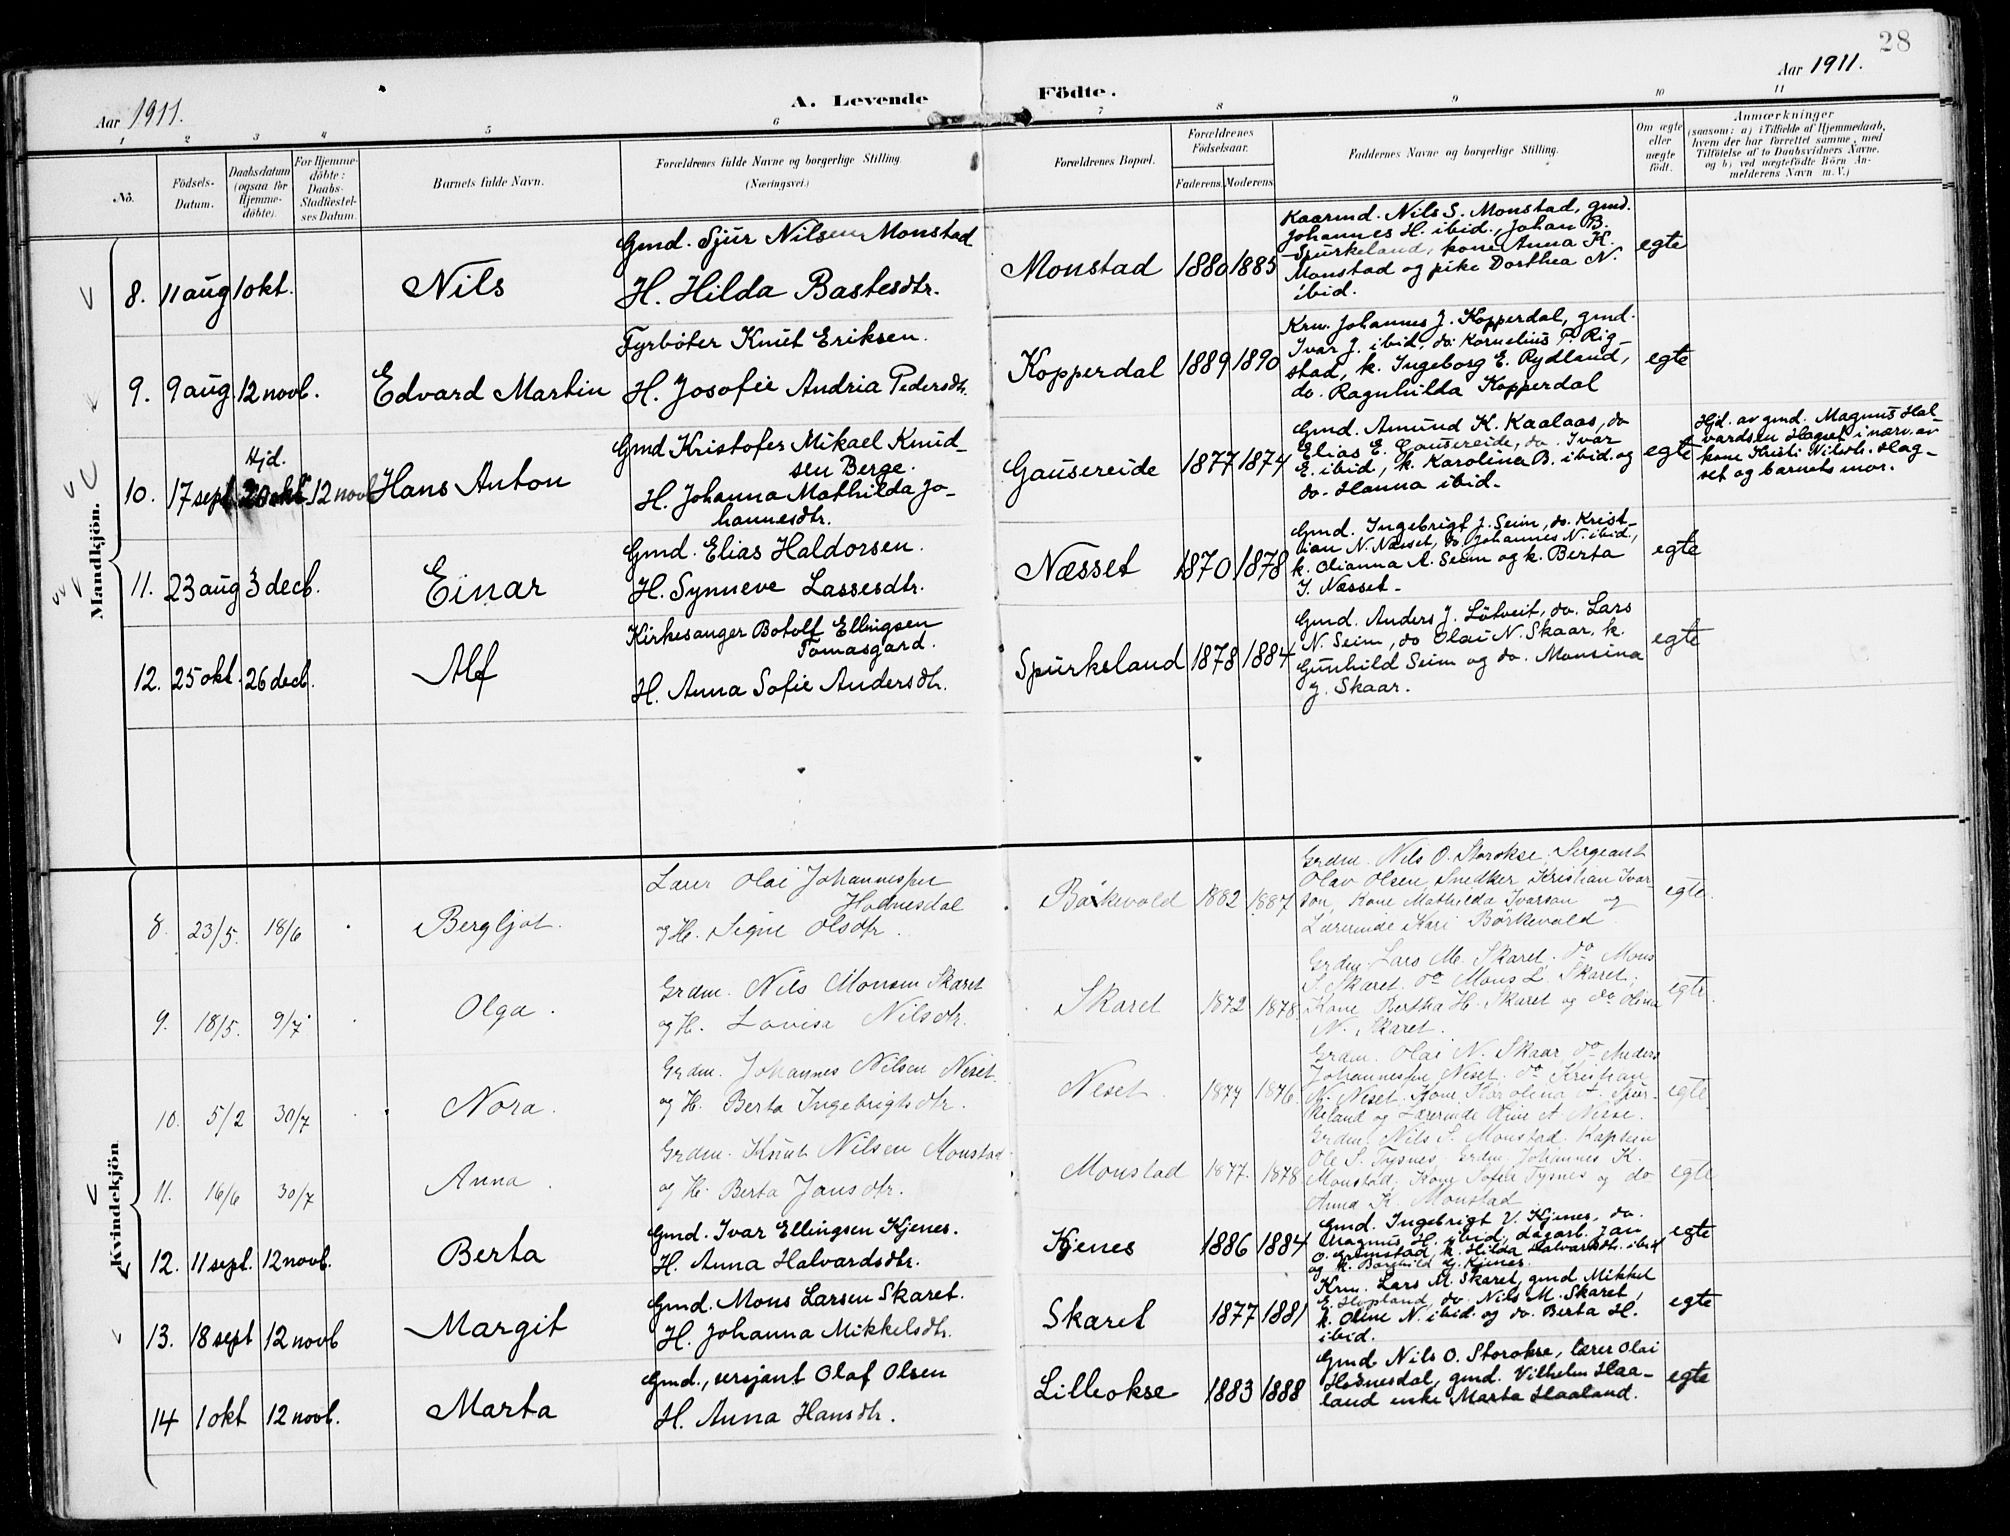 28
Aar 1911.
A. Levende
Födte.
Aar 1911.
1 2 3 4 5 6 7 8 9 10 11
No.
Födsels-
Datum.
Daabsdatum
(ogsaa for
Hjemme-
döbte).
For Hjemme-
döbte:
Daabs-
Stadfæstel-
ses Datum.
Barnets fulde Navn.
Forældrenes fulde Navne og borgerlige Stilling
(Næringsvei.)
Forældrenes Bopæl.
Forældrenes
Födselsaar.
Faderens. Moderens.
Faddernes Navne og borgerlige Stilling.
Om ægte
eller
uægte
födt.
Anmærkninger
(saasom: a) i Tilfælde af Hjemmedaab,
hvem der har forrettet samme, med
Tilföielse af to Daabsvidners Navne,
og b) ved uægtefödte Börn An-
melderens Navn m. V.)
Mandkjön.
8. 11 aug 1 okt. Nils
Gmd. Sjur Nilsen Monstad
H. Hilda Bastesdtr.
Monstad 1880 1885
Kaarmd. Nils S. Monstad, gmd.
Johannes H. ibid., Johan B.
Spurkeland, kone Anna K.
Monstad og pike Dorthea N.
ibid.
egte
9. 9 aug. 12 novb. Edvard Martin
Fyrböter Knut Eriksen.
H. Josofie Andria Pedersdtr.
Kopperdal 1889 1890
Krm. Johannes J. Kopperdal, gmd.
Ivar J. ibid, do. Kornelius P. Rig-
stad, k. Ingeborg E. Rydland,
do. Ragnhilda Kopperdal
egte
10. 17 sept. Hjd. 20 okt 12 novb Hans Anton
Gmd Kristofer Mikael Knud-
sen Berge.
H. Johanna Mathilda Jo-
hannesdtr.
Gausereide 1877 1874
Gmd. Amund K. Kaalaas, do
Elias E. Gausereide, do. Ivar
E. ibid, k. Karolina B. ibid. og
do. Hanna ibid.
egte
Hjd. av gmd. Magnus Hal-
vardsen Hagset i nærv. av
kone Kristi Nilsdtr. Hag-
set og barnets mor.
11. 23 aug 3 decb. Einar
Gmd. Elias Haldorsen.
H. Synneve Lassesdtr.
Næsset 1870 1878
Gmd. Ingebrigt J. Seim, do. Krist-
ian N. Næsset, do Johannes N. ibid.,
k. Olianna A. Seim og k. Berta
I. Næsset.
egte
12. 25 okt. 26 decb. Alf
Kirkesanger Botolf Ellingsen
Tomasgard.
H. Anna Sofie Andersdtr.
Spurkeland 1878 1884
Gmd. Anders J. Lötveit, do. Lars
N. Seim, do Olai N. Skaar, k.
Gunhild Seim og do. Monsina
J. Skaar.
egte
Kvindekjön
8. 23/5. 18/6 Bergljot.
Lærer Olai Johannessen
Hodnesdal
og H. Signe Olsdtr.
Börkevold 1882 1887
Grdm. Nils O. Storokse, Sergeant
Olav Olsen, Snedker Kristian Ivar-
son, Kone Mathilda Ivarson og
Lærerinde Kari Börkevold
egte.
9. 18/5. 9/7. Olga.
Grdm. Nils Monsen Skaret
og H. Lovisa Nilsdtr.
Skaret 1872 1878.
Grdm. Lars M. Skaret. do Mons
S. Skaret. do Mons L. Skaret;
Kone Bertha H. Skaret og do Olina
N. Skaret.
egte.
10. 5/2 30/7 Nora.
Grdm. Johannes Nilsen Neset.
og H. Berta Ingebrigtsdtr.
Neset. 1877 1876.
Grdm. Olai N. Skaar do Anders
Johannessen Neset. do Kristian
N. Neset. Kone Karolina A. Spur-
keland og Lærerinde Oline A. Nesse.
egte.
11. 16/6 30/7 Anna.
Grdm. Knut Nilsen Monstad
og H. Berta Jansdtr.
Monstad 1877. 1878
Grdm. Nils S. Monstad. Kaptein
Ole S. Tysnes. Grdm. Johannes K.
Monstad; Kone Sofie Tysnes og do
Anna K. Monstad
egte
12. 11 sept. 12 novb. Berta
Gmd. Ivar Ellingsen Kjenes.
H. Anna Halvardsdtr.
Kjenes 1886 1884
Gmd. Ingebrigt V. Kjenes, do.
Magnus H. ibid, dagarb. Jan
O. Grimstad, k. Hilda Halvardsdtr. ibid
og k. Borghild Kjenes.
egte
13. 18 sept 12 novb Margit
Gmd. Mons Larsen Skaret.
H. Johanna Mikkelsdtr.
Skaret 1877 1881
Krm. Lars M. Skaret, gmd Mikkel
E. Hopland, do. Nils M. Skaret,
k. Oline N. ibid. og do. Berta H.
ibid.
egte
14 1 okt 12 novb. Marta
Gmd., sersjant Olaf Olsen
H. Anna Hansdtr.
Lilleokse 1883 1888
Gmd. Nils O. Storokse, lærer Olai
Hodnesdal, gmd. Vilhelm Haa-
land enke Marta Haaland.
egte